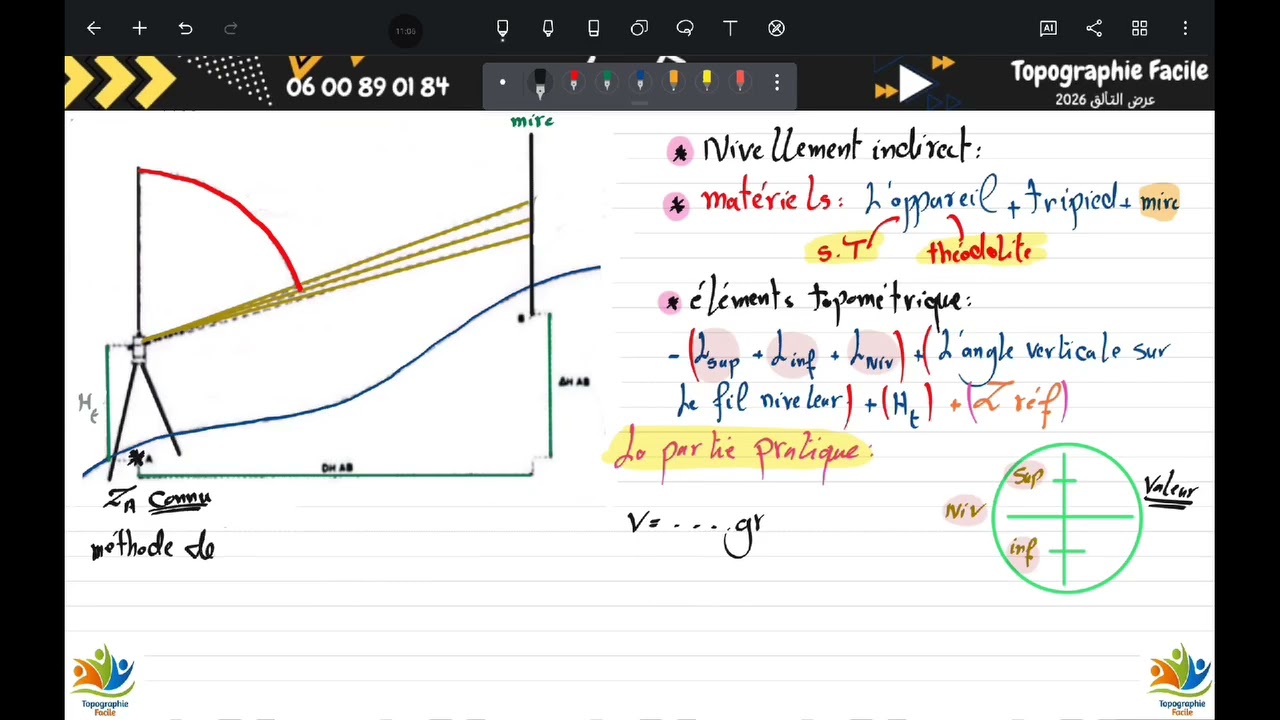 11:06
AI
06 00 89 01 84
Topographie Facile
عرض التألق 2026
mire
Ht
A
B
ΔH AB
DH AB
ZA Connu
méthode de
* Nivellement indirect:
* matériels: L'appareil + tripied + mire
S.T théodolite
* éléments topométrique:
- (Lsup + Linf + LNiv) + (L'angle verticale sur
Le fil niveleur) + (Ht) + (Z réf)
La partie pratique:
V = .... gr
Sup
Niv
inf
Valeur
Topographie
Facile
Topographie
Facile